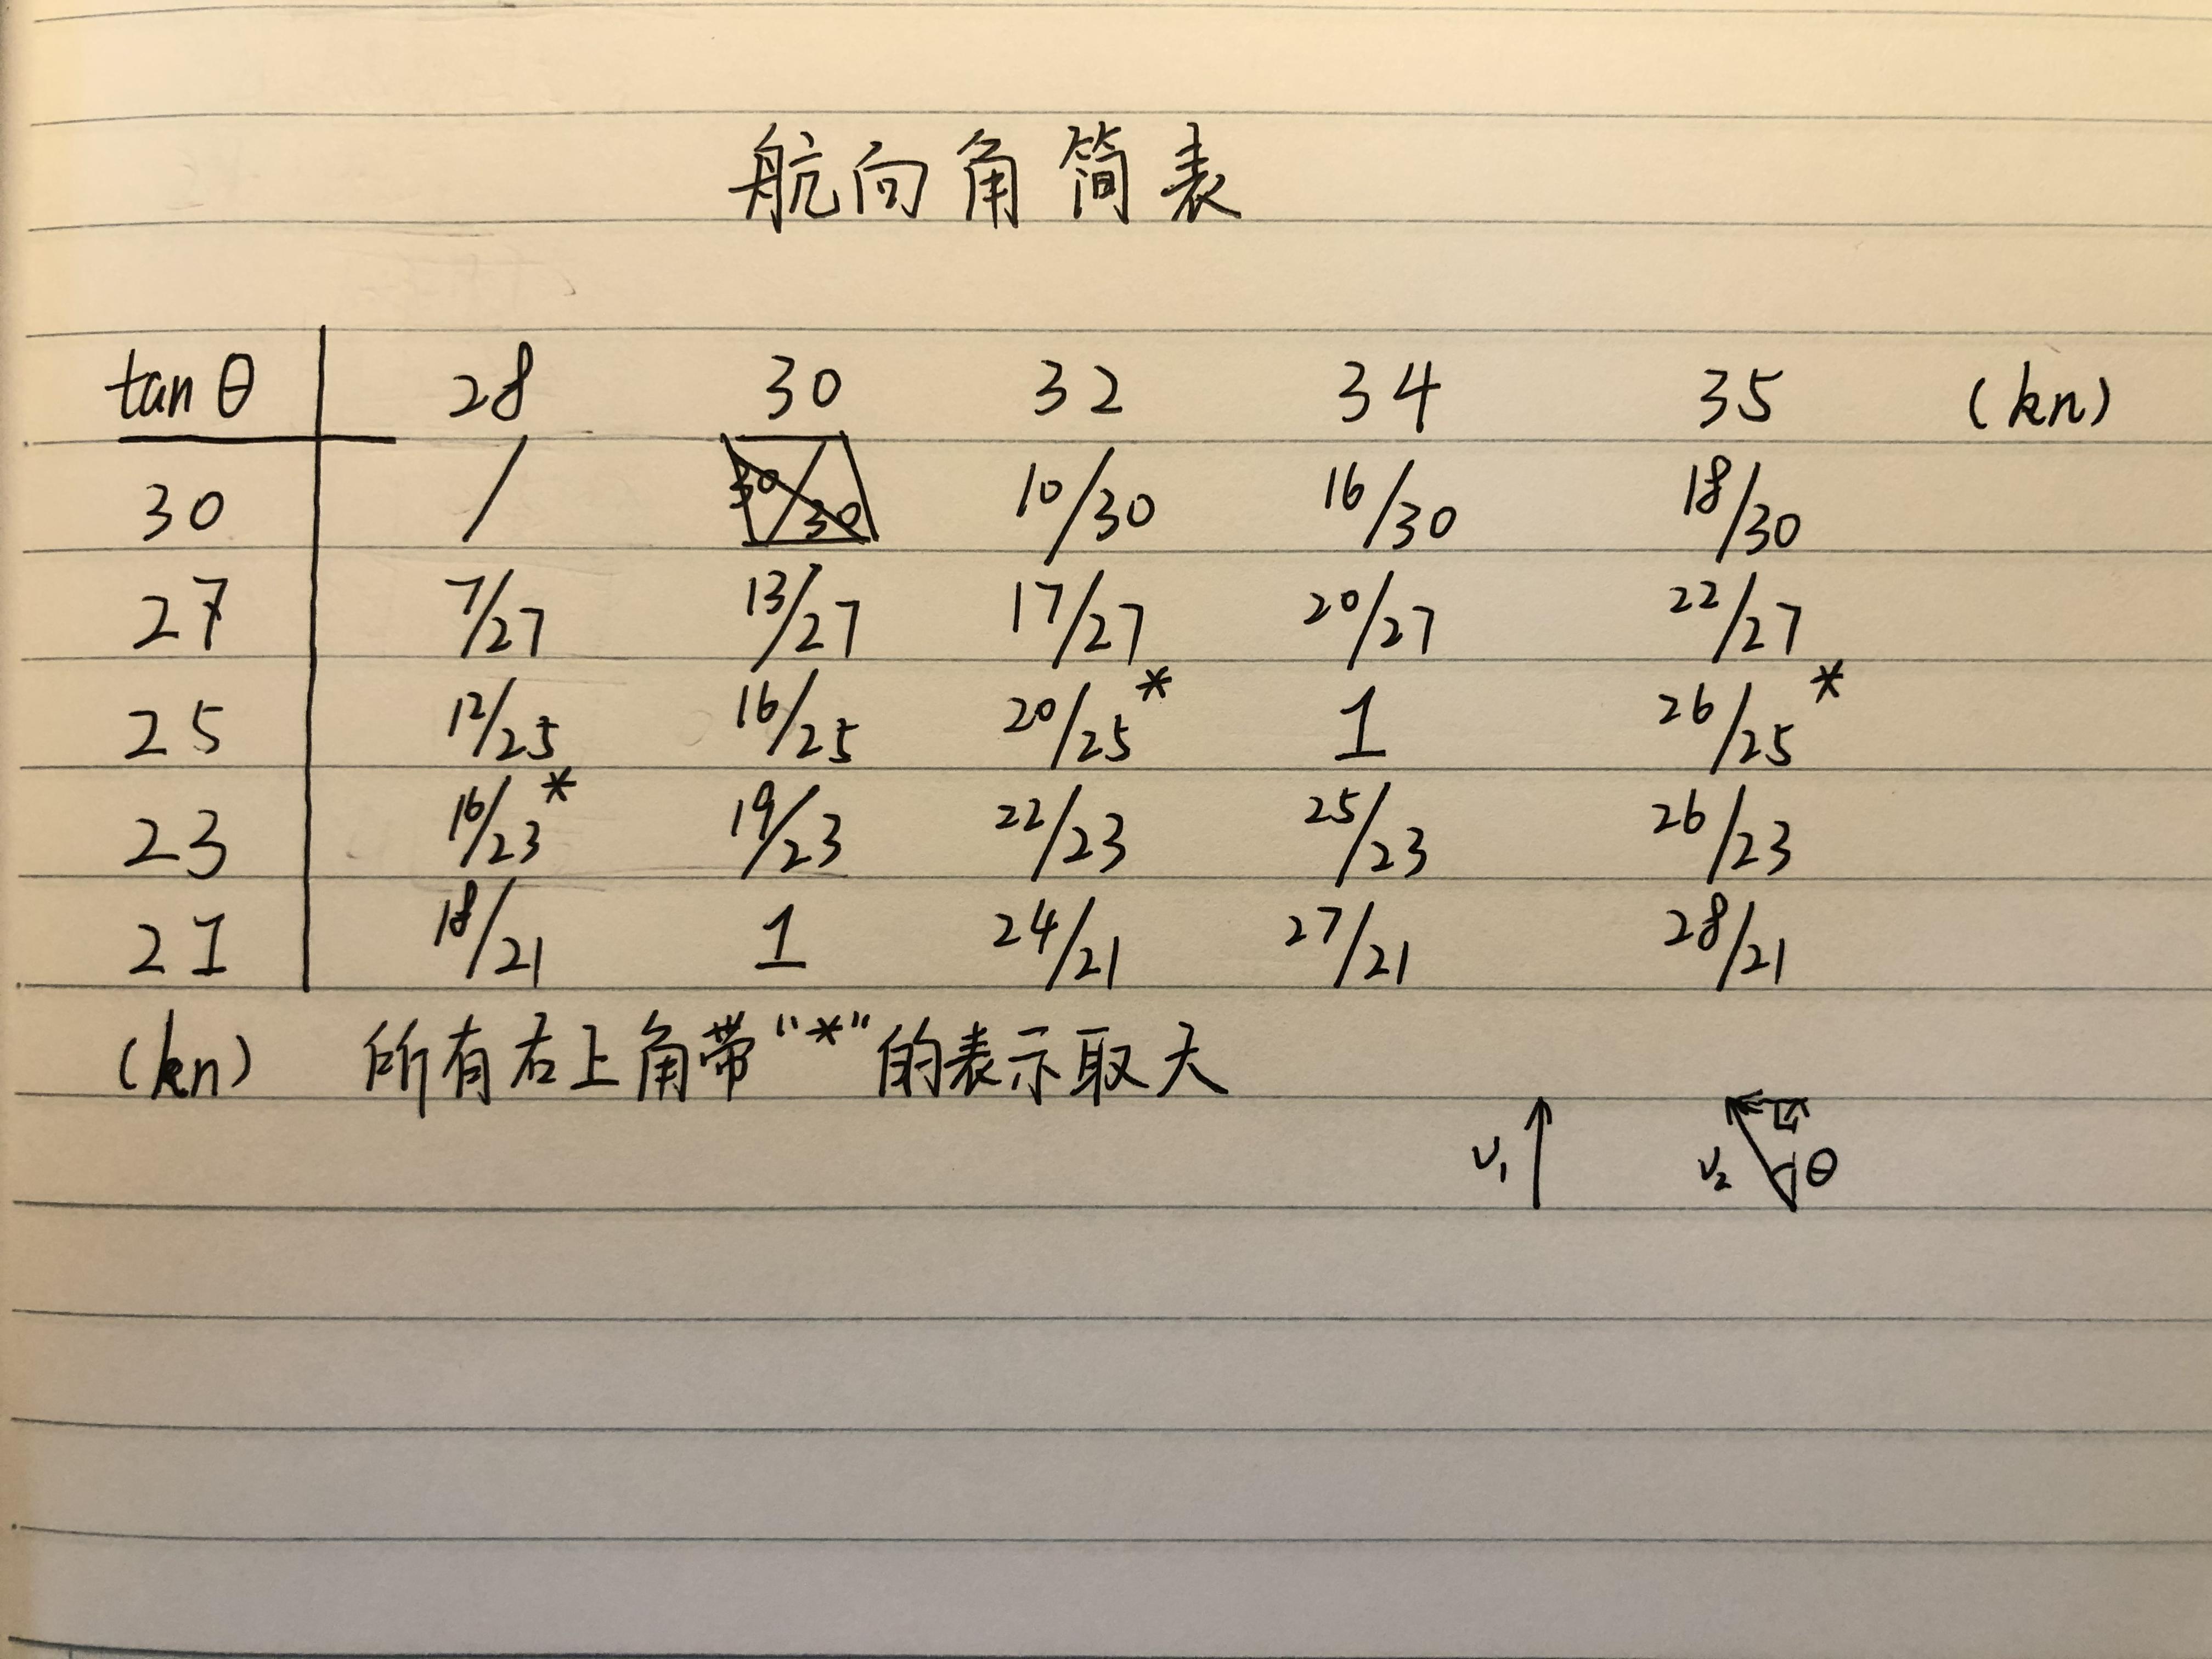 航向角简表
tan θ 28 30 32 34 35 (kn)
30 / 10/30 16/30 18/30
27 7/27 13/27 17/27 20/27 22/27
25 12/25 16/25 20/25* 1 26/25*
23 16/23* 19/23 22/23 25/23 26/23
21 18/21 1 24/21 27/21 28/21
(kn) 所有右上角带“*”的表示取大
v₁ v₂ θ